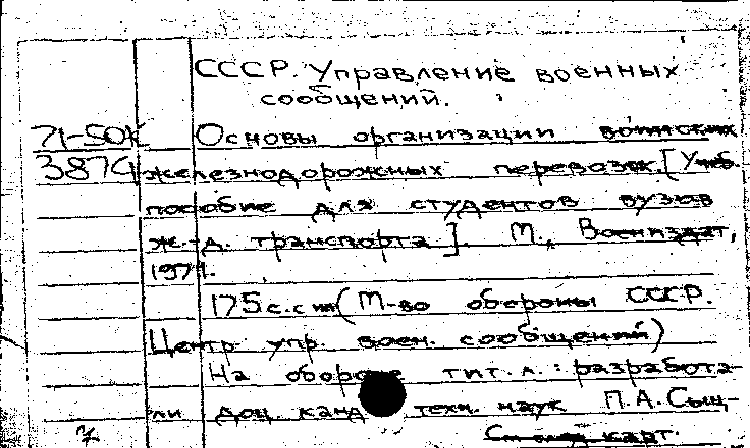 СССР. Управление военных
сообщений.
71-50К Основы организации воинских
3874 железнодорожных перевозок. [Учеб.
пособие для студентов вузов
ж.-д. транспорта]. М., Воениздат,
1971.
175 с. с ил (М-во обороны СССР.
Центр упр. воен. сообщений)
На обороте тит. л.: разработа-
ли доц канд техн. наук П.А. Сыщ-
См след карт.